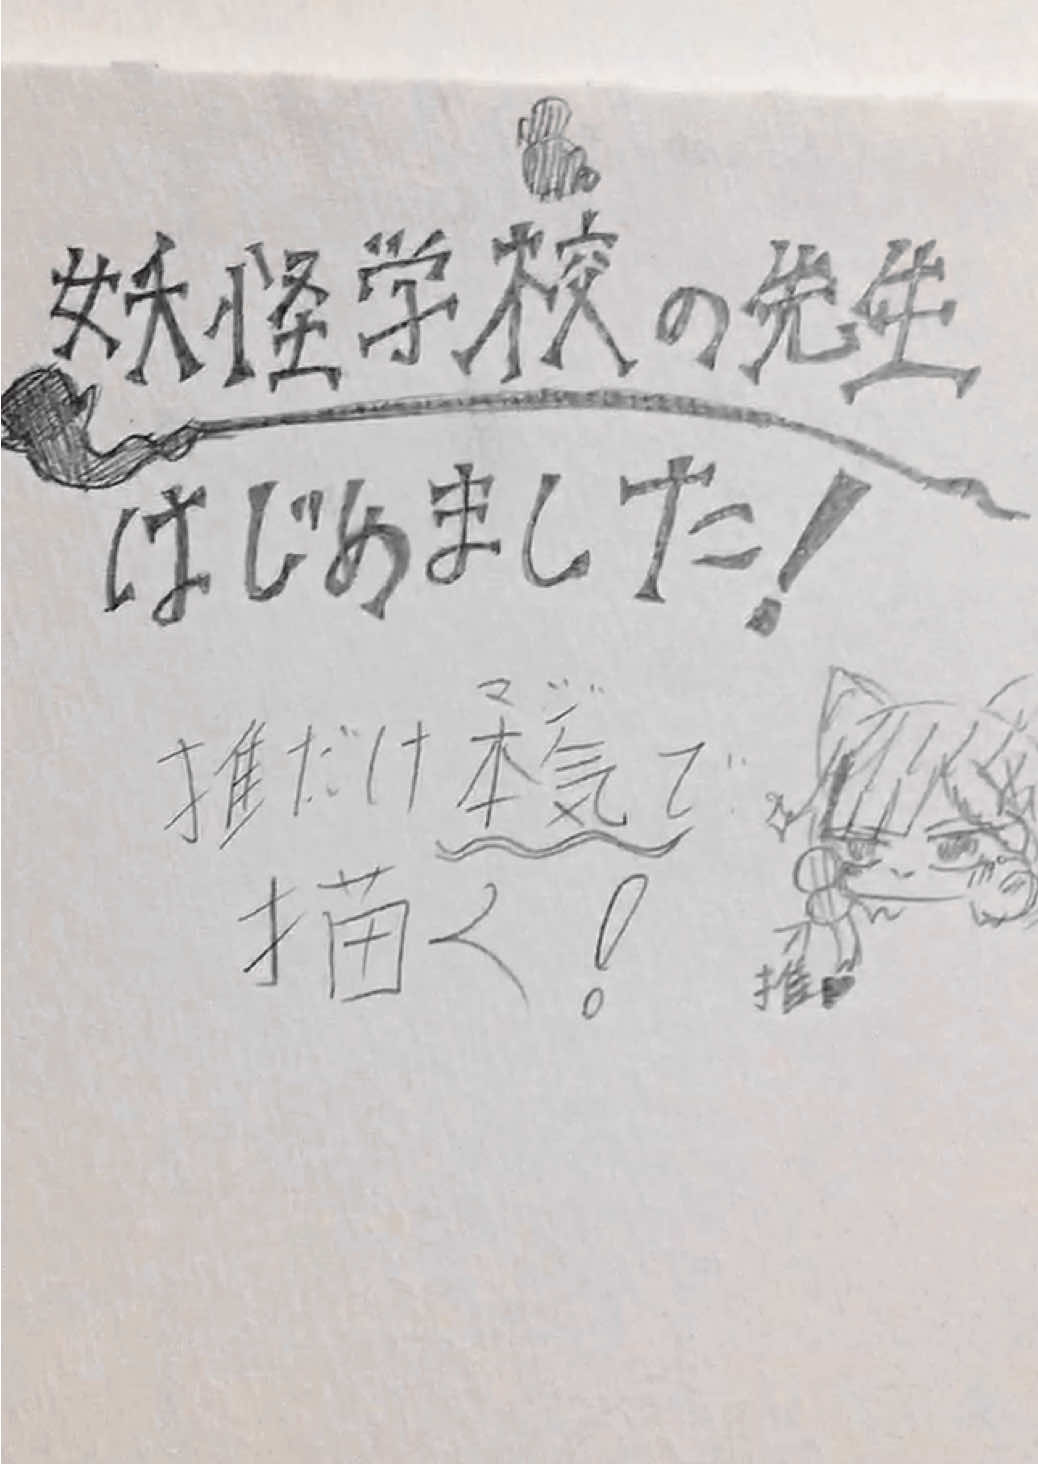 妖怪学校の先生
はじめました!
推だけ本気で
マジ
描く!
推